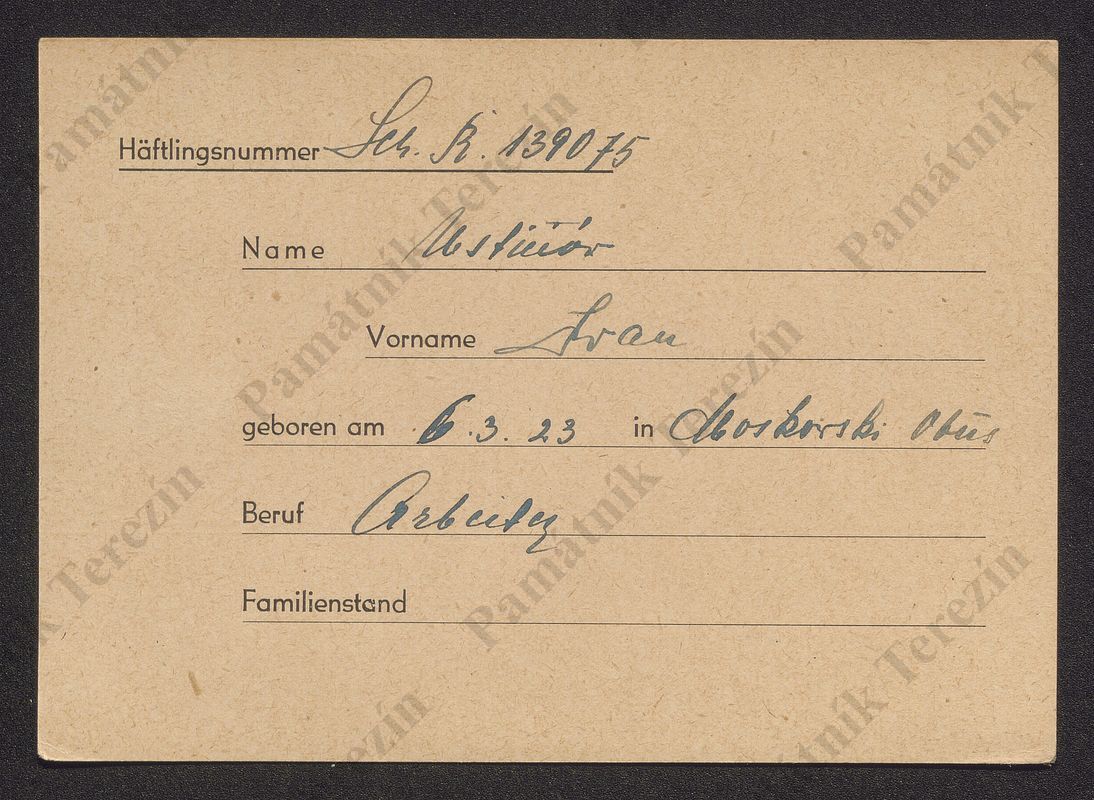 Häftlingsnummer Sch. R. 139075
Name Ustinov
Vorname Ivan
geboren am 6.3.23 in Moskovski
Beruf Arbeiter
Familienstand
Památník Terezín
Památník Terezín
Památník Terezín
Památník Terezín
Památník Terezín